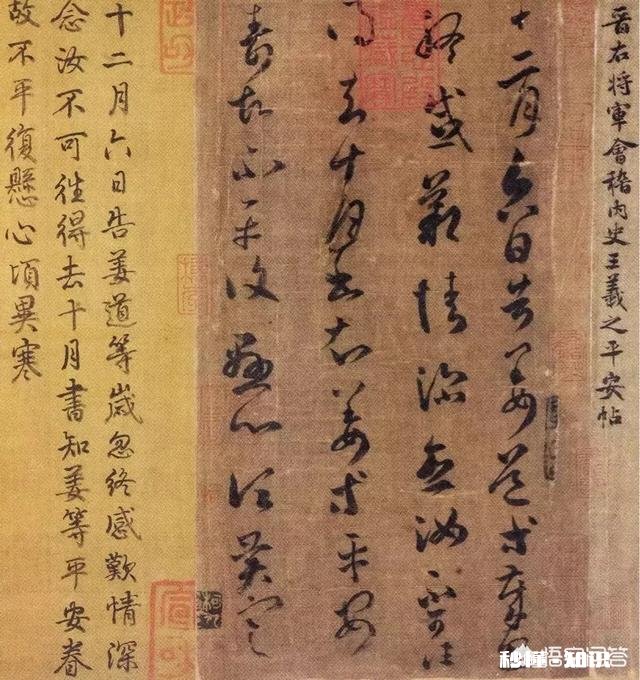 晋右將軍會稽内史王羲之平安帖
十二月六日告姜道等歲忽
終感歎情深念汝不可往
得去十月書知姜等平安
壽故不平復懸心頃異寒
十二月六日告姜道等歲忽終感歎情深
念汝不可往得去十月書知姜等平安眷
故不平復懸心頃異寒
悟空问答
秒懂-知识